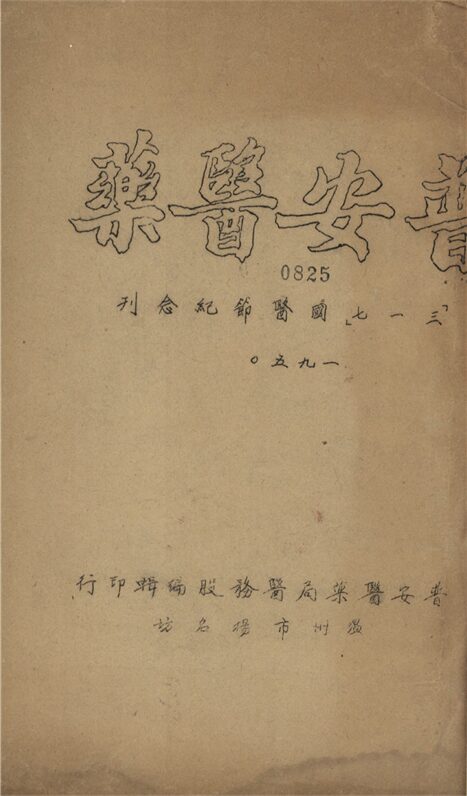 普安醫藥
0825
「三一七」國醫節紀念刊
一九五〇
普安醫藥局醫務股編輯印行
溫州市楊名坊